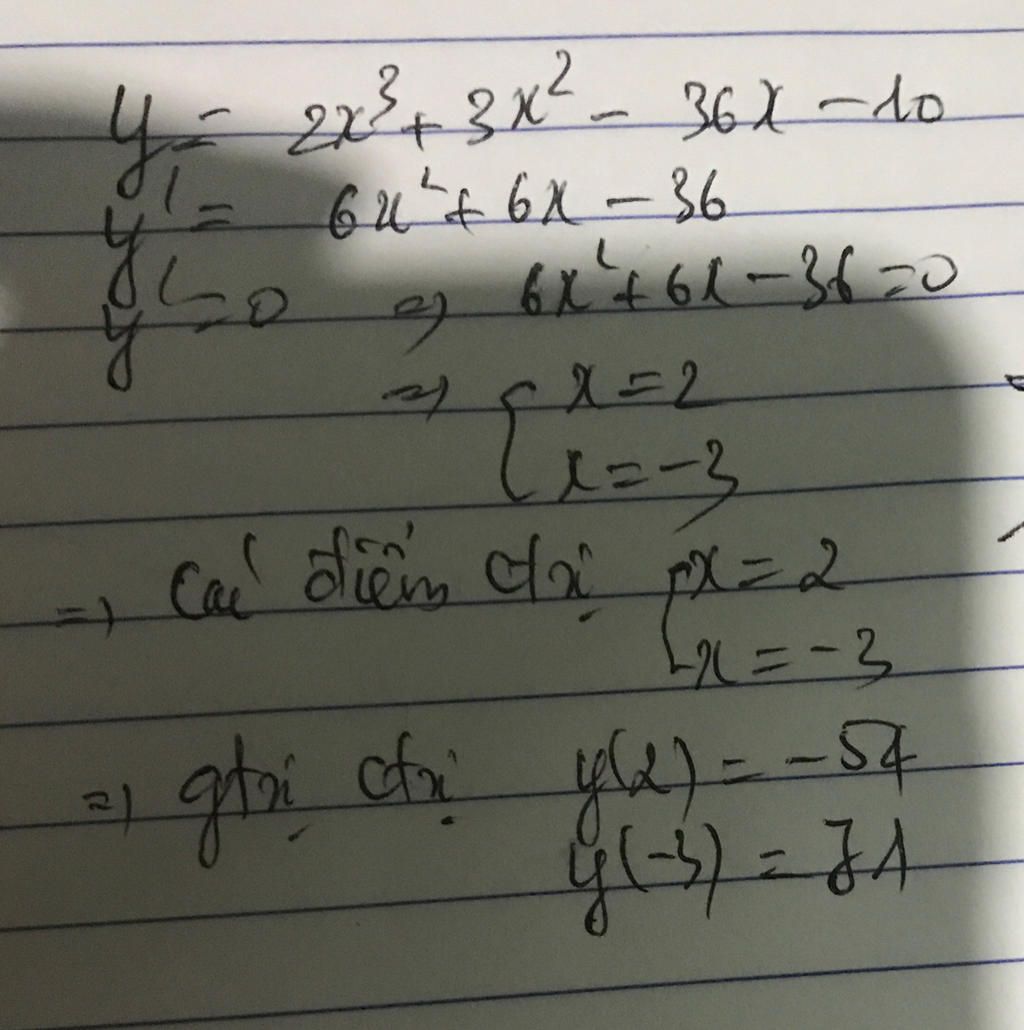 y = 2x³ + 3x² - 36x - 10
y' = 6x² + 6x - 36
y' = 0 => 6x² + 6x - 36 = 0
=> { x = 2
x = -3
=> Các điểm ctrị { x = 2
x = -3
=> gtrị ctrị y(2) = -54
y(-3) = 71